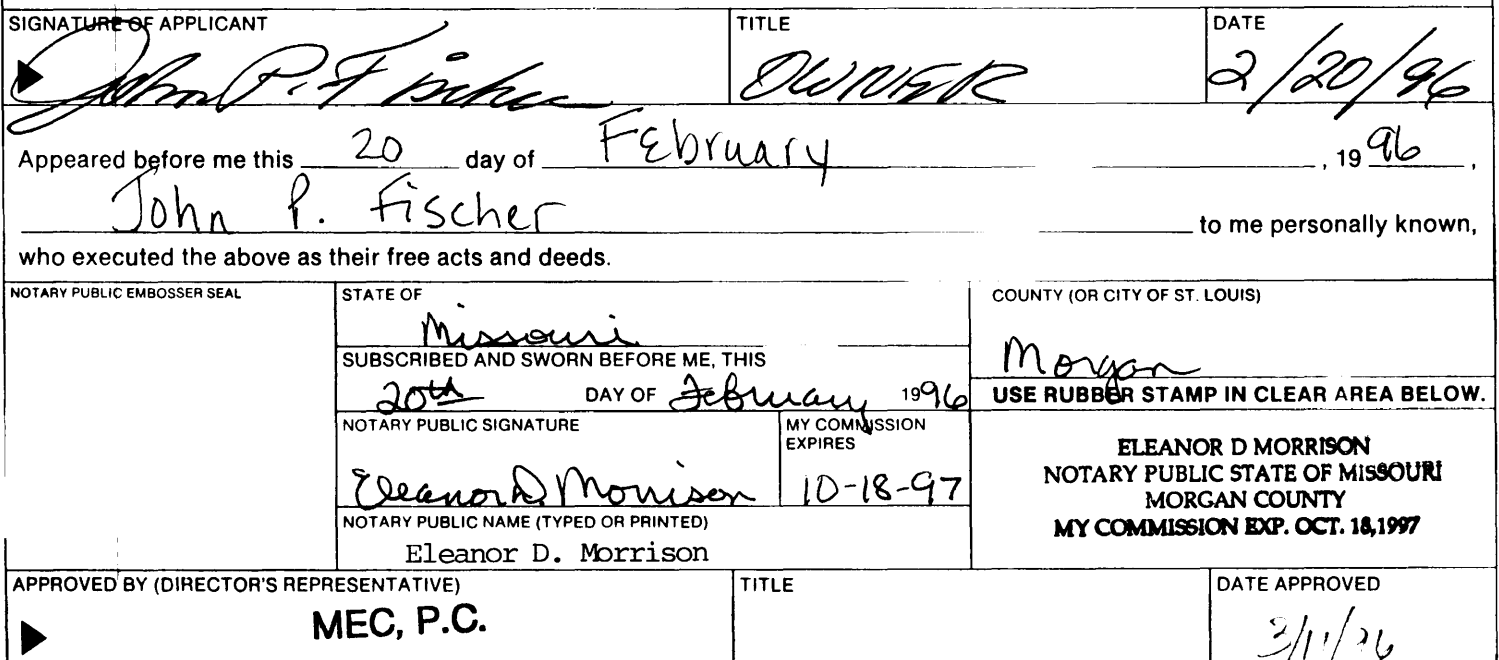 SIGNATURE OF APPLICANT TITLE DATE
John P. Fischer OWNER 2/20/96
Appeared before me this 20 day of February , 19 96 ,
John P. Fischer to me personally known,
who executed the above as their free acts and deeds.
NOTARY PUBLIC EMBOSSER SEAL STATE OF COUNTY (OR CITY OF ST. LOUIS)
Missouri Morgan
SUBSCRIBED AND SWORN BEFORE ME, THIS
20th DAY OF February 1996 USE RUBBER STAMP IN CLEAR AREA BELOW.
NOTARY PUBLIC SIGNATURE MY COMMISSION EXPIRES
Eleanor D. Morrison 10-18-97
NOTARY PUBLIC NAME (TYPED OR PRINTED)
Eleanor D. Morrison
ELEANOR D MORRISON
NOTARY PUBLIC STATE OF MISSOURI
MORGAN COUNTY
MY COMMISSION EXP. OCT. 18,1997
APPROVED BY (DIRECTOR'S REPRESENTATIVE) TITLE DATE APPROVED
MEC, P.C. 3/11/96